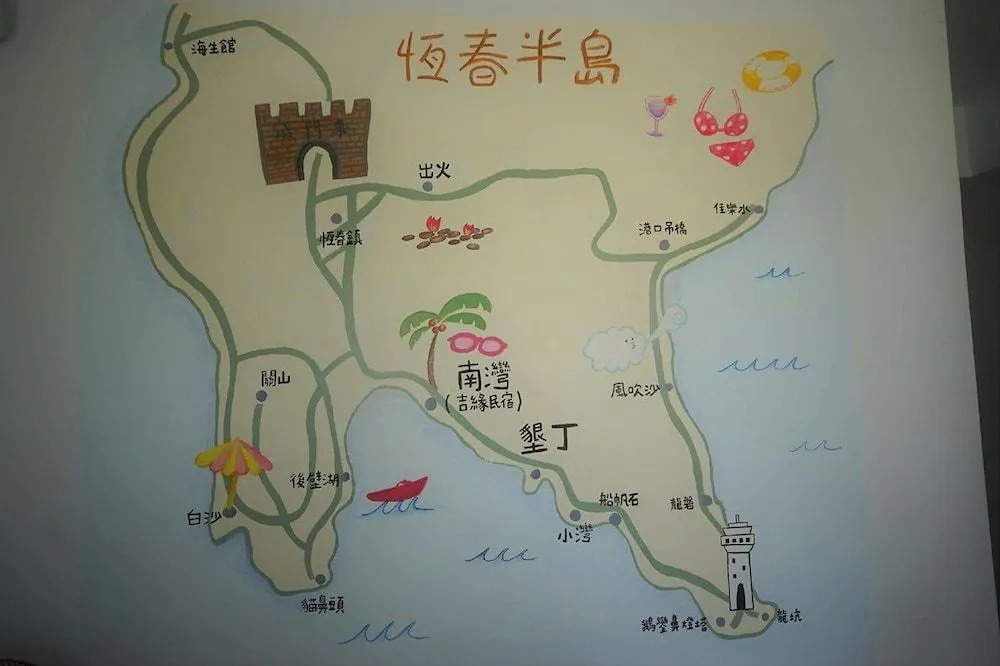 恆春半島
海生館
東門城
出火
佳樂水
港口吊橋
恆春鎮
南灣
(吉緣民宿)
關山
風吹沙
墾丁
後壁湖
船帆石
龍磐
白沙
小灣
貓鼻頭
鵝鑾鼻燈塔
龍坑